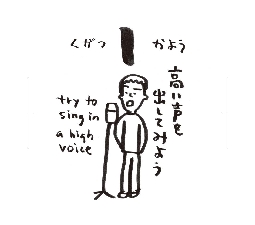 くがつ
かよう
高い声を
出してみよう
try to
sing in
a high
voice